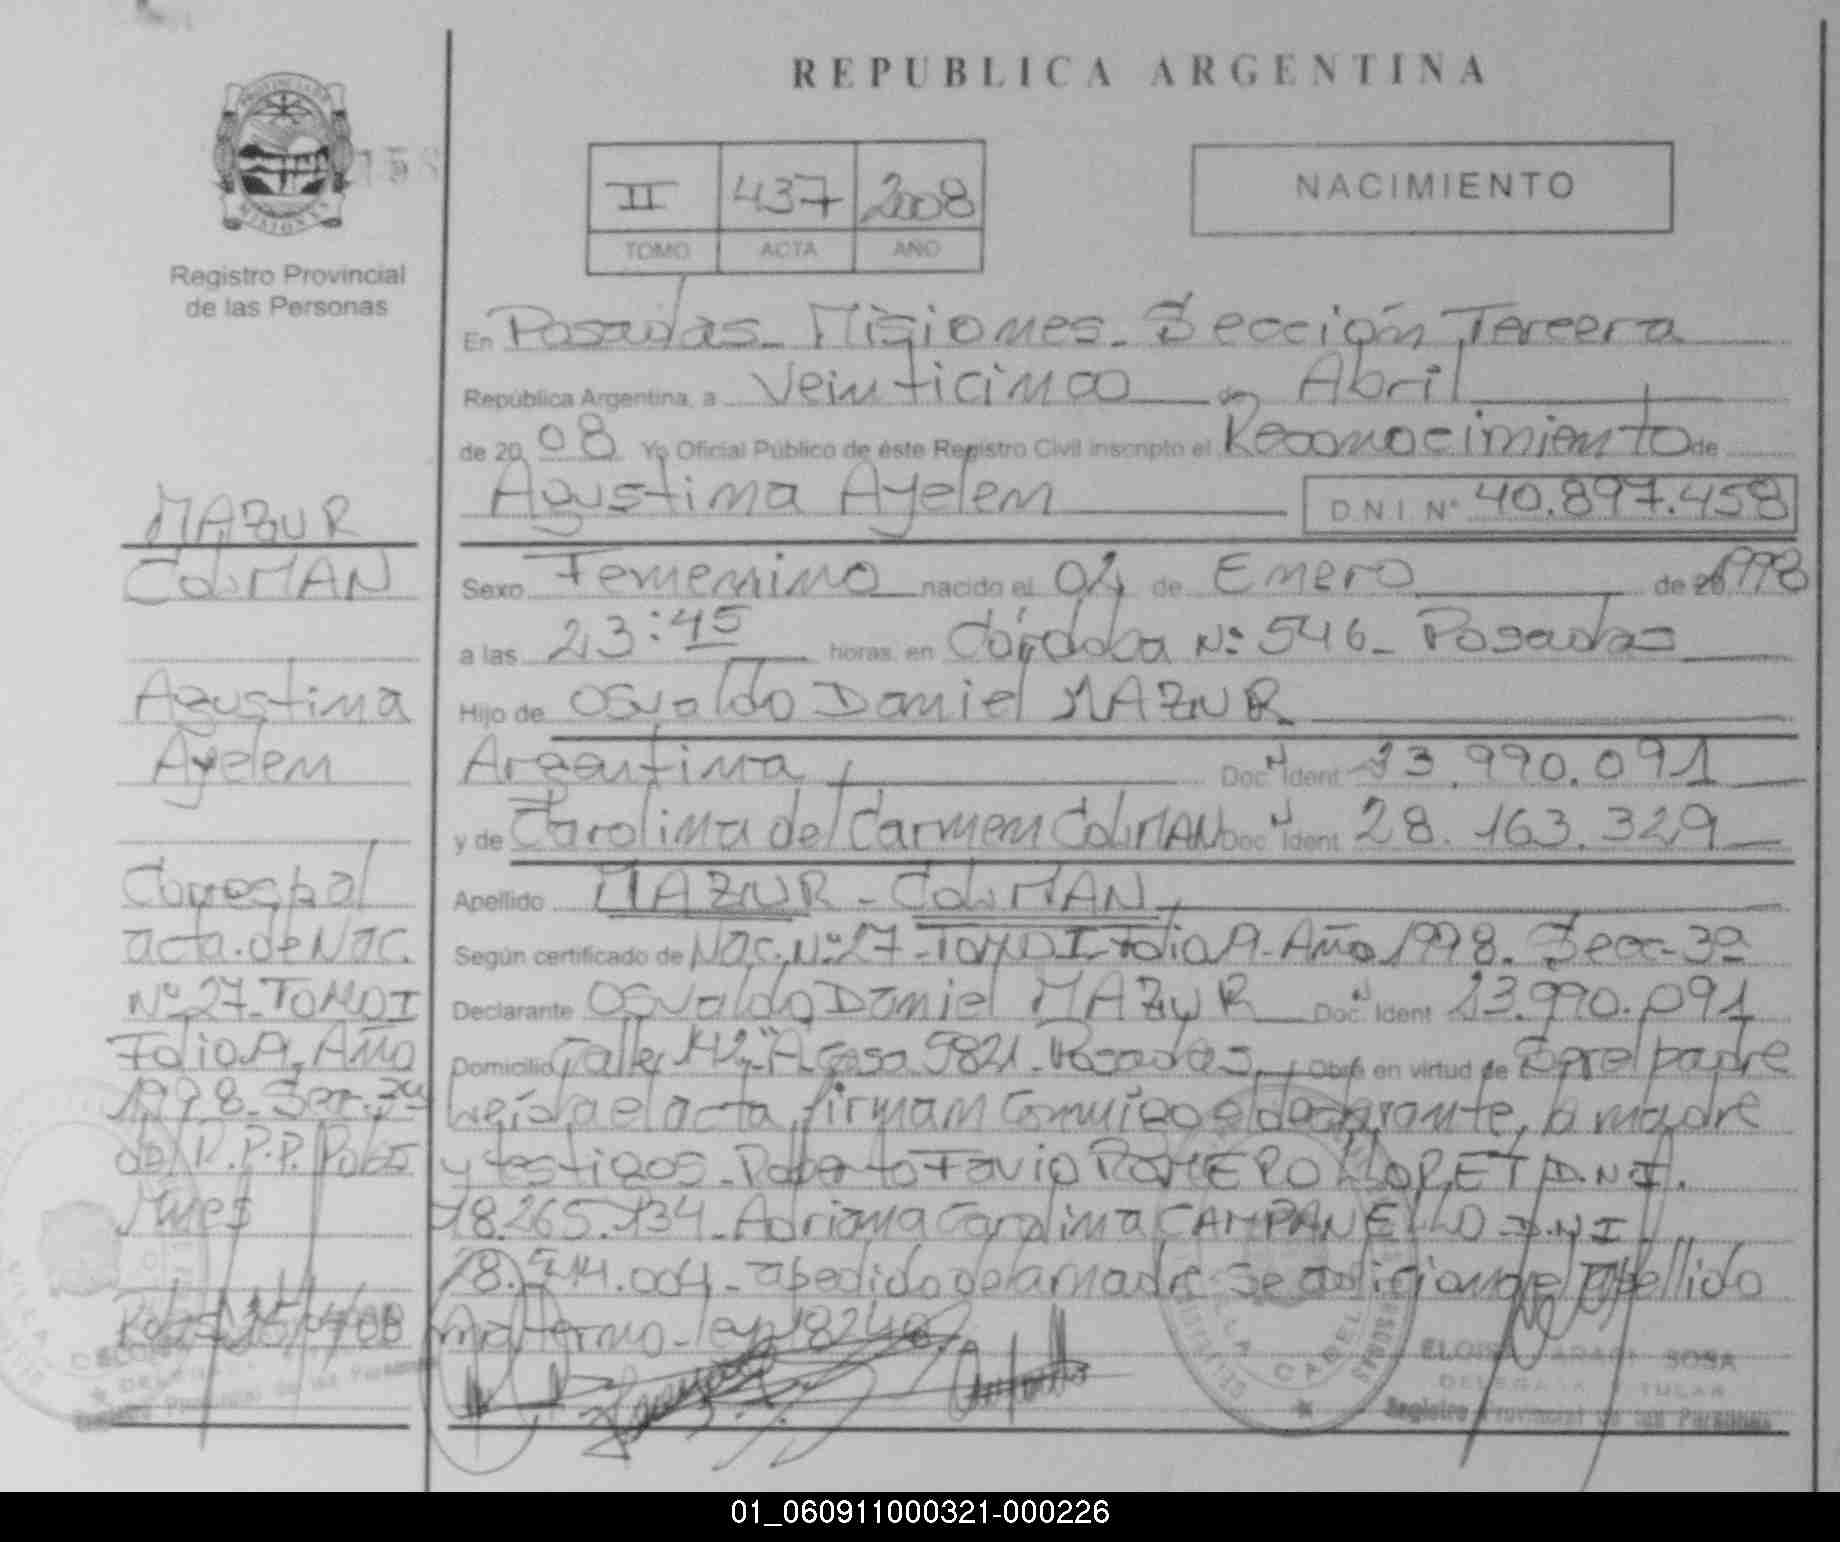 REPUBLICA ARGENTINA
Registro Provincial
de las Personas
II 437 2008
TOMO ACTA AÑO
NACIMIENTO
En Posadas - Misiones - Sección Tercera
República Argentina, a Veinticinco de Abril
de 2008 Yo Oficial Público de éste Registro Civil inscripto el Reconocimiento de
Agustina Ayelen D.N.I. Nº 40.897.458
Sexo Femenino nacido el 02 de Enero de 1998
a las 23:45 horas, en Córdoba Nº 546 - Posadas
Hijo de Osvaldo Daniel MAZUR
Argentina Doc. N Ident 23.990.091
y de Carolina del Carmen ColMAN Doc. N Ident 28.163.329
Apellido MAZUR - ColMAN
Según certificado de Nac. Nº 27 - TOMO I - Folio 19 - Año 1998. Secc - 3ª
Declarante Osvaldo Daniel MAZUR Doc. N Ident 23.990.091
Domicilio Calle 142 "A" Casa 5821 - Posadas Obra en virtud de Ser el padre
leída el acta, firman Conmigo el declarante, la madre
y testigos - Roberto Favio ROMERO LLORET D.N.I.
18.265.134 - Adriana Carolina CAMPANELLO D.N.I.
28.514.004 - a pedido de la madre se adiciona el apellido
materno - ley 18248.
MAZUR
ColMAN
Agustina
Ayelen
Correspo al
acta de Nac.
Nº 27 - TOMO I
Folio 19, Año
1998 - Sec - 3ª
del R.P.P. Pdas
Mnes
Pdas 25/4/08
SOSA
DELEGADA TITULAR
Registro Provincial de las Personas
01_060911000321-000226